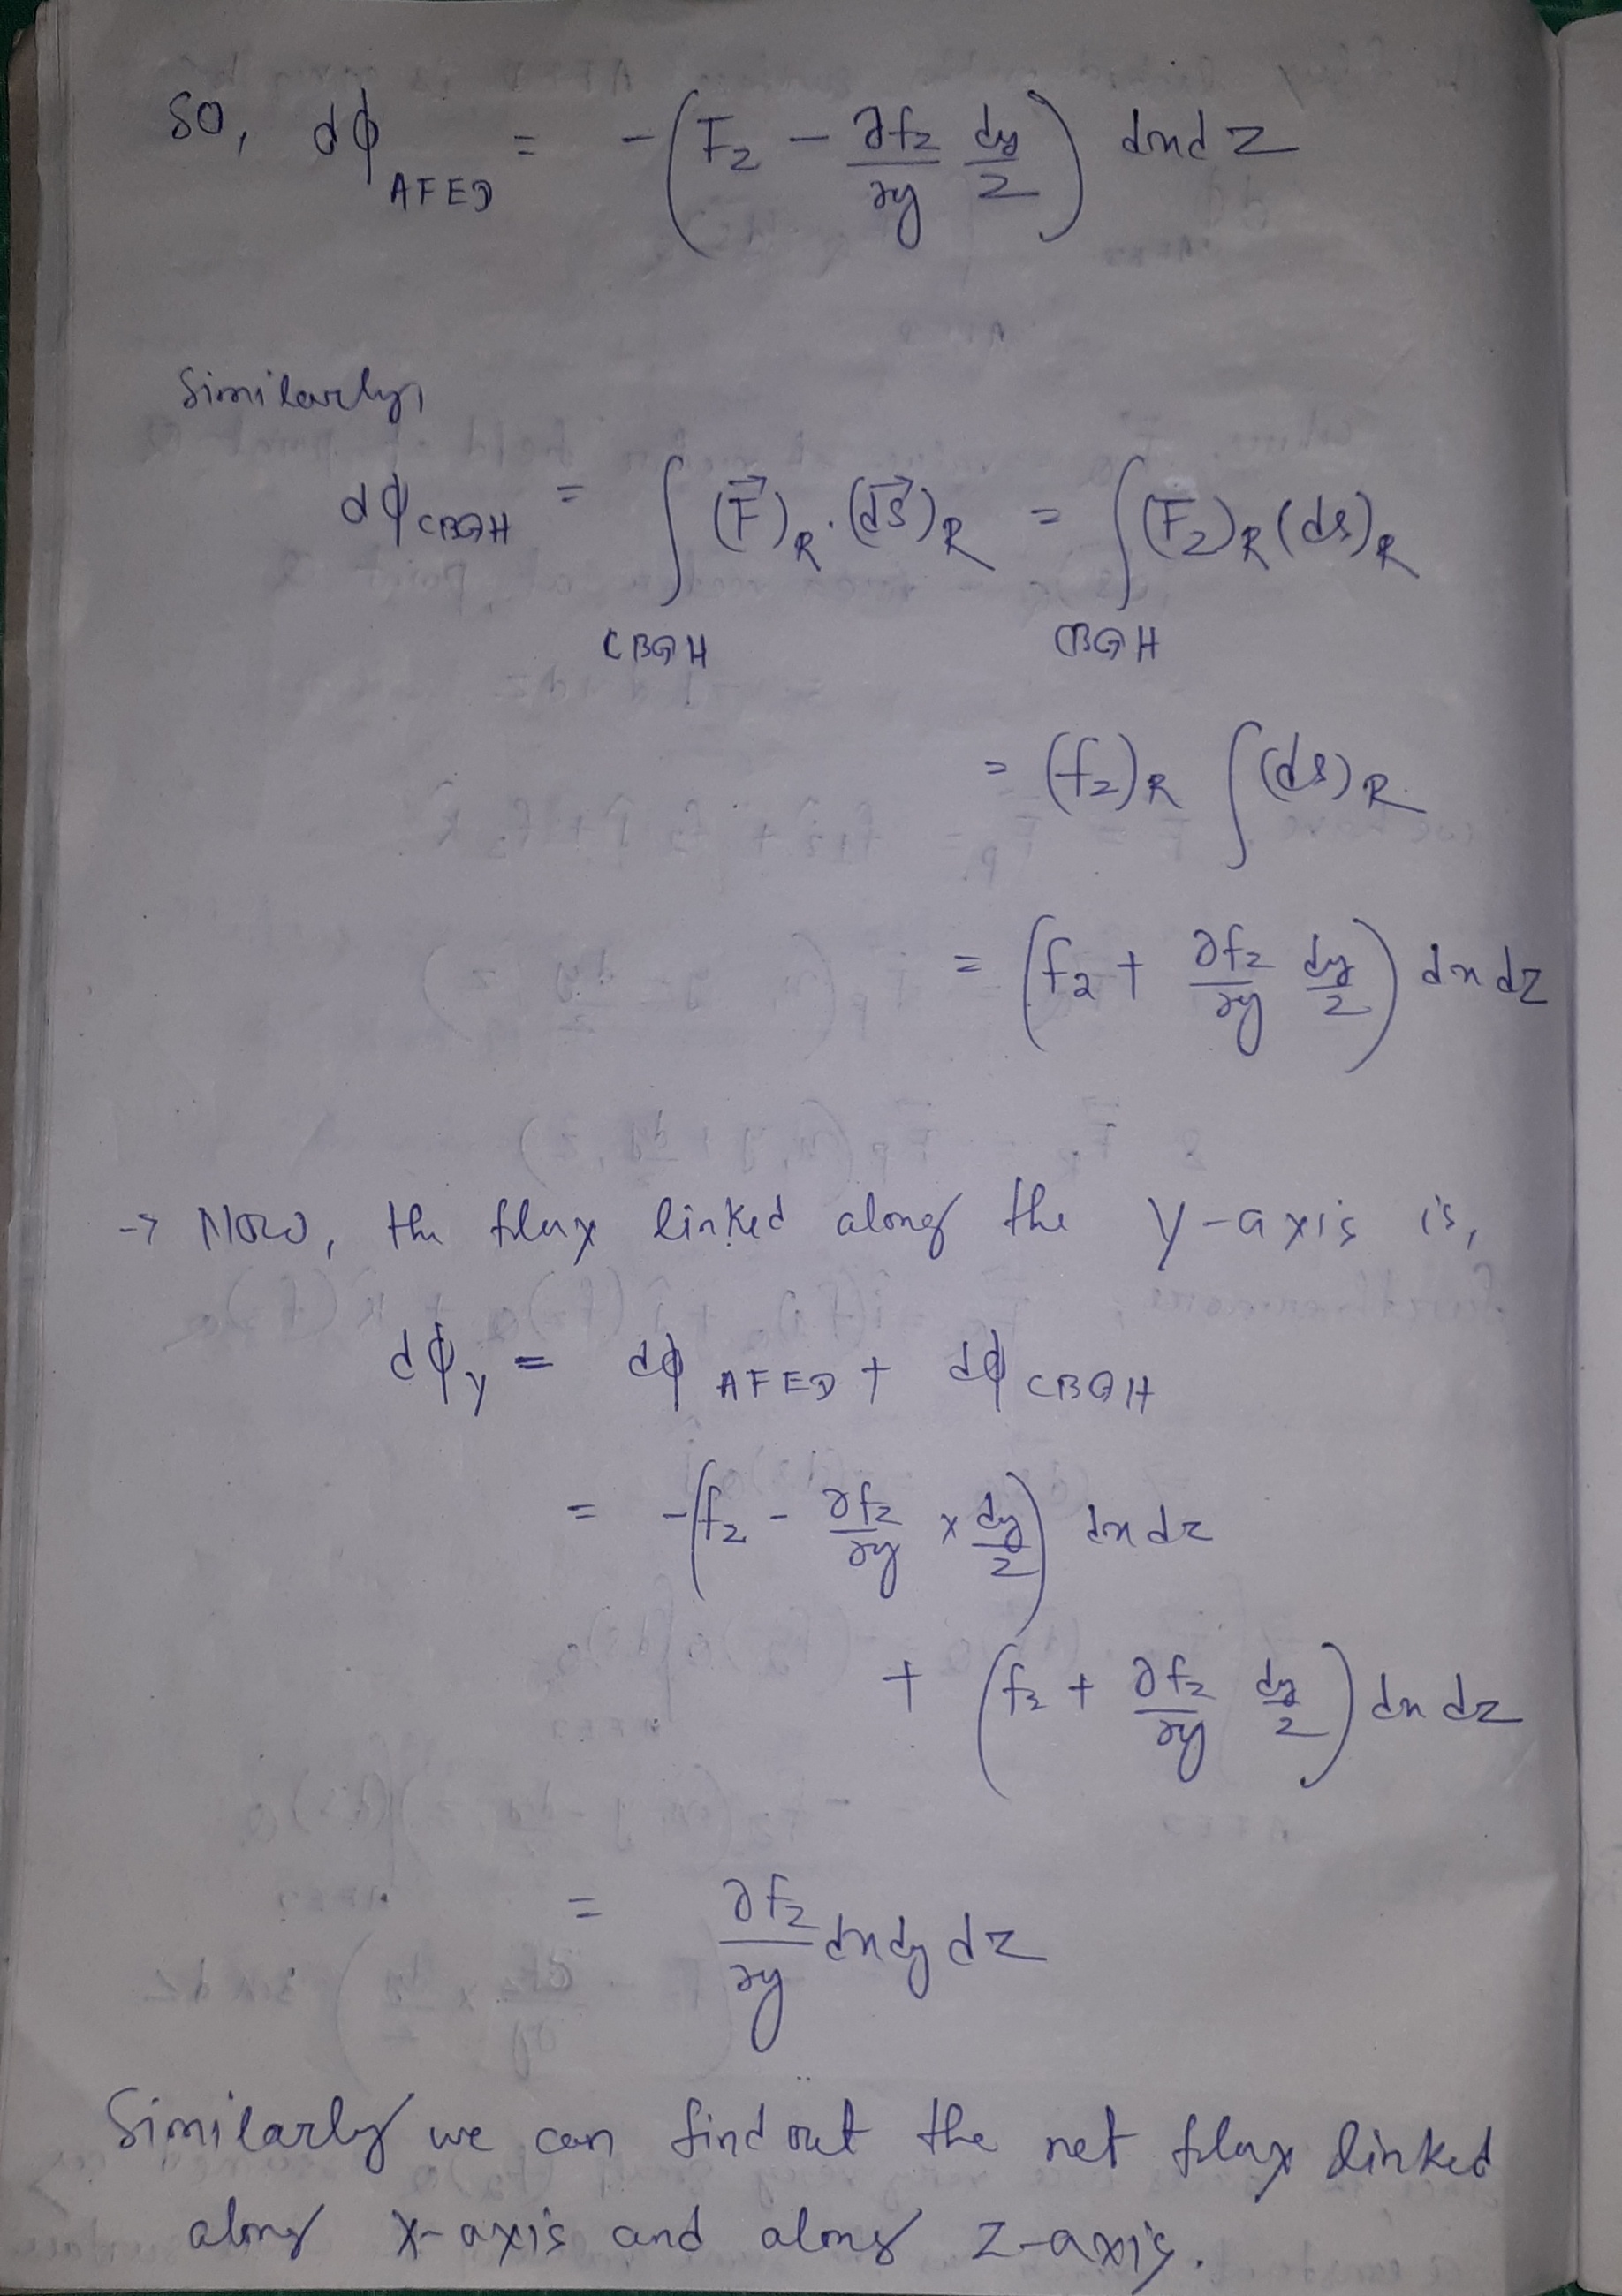 So, dϕ_AFED = -(F₂ - ∂f₂/∂y dy/2) dxdz
Similarly,
dϕ_CBGH = ∫_CBGH (F⃗)_R · (ds⃗)_R = ∫_CBGH (F₂)_R (ds)_R
= (f₂)_R ∫(ds)_R
= (f₂ + ∂f₂/∂y dy/2) dx dz
-> Now, the flux linked along the Y-axis is,
dϕ_y = dϕ_AFED + dϕ_CBGH
= -(f₂ - ∂f₂/∂y × dy/2) dx dz
+ (f₂ + ∂f₂/∂y dy/2) dx dz
= ∂f₂/∂y dxdydz
Similarly we can find out the net flux linked
along X-axis and along Z-axis.